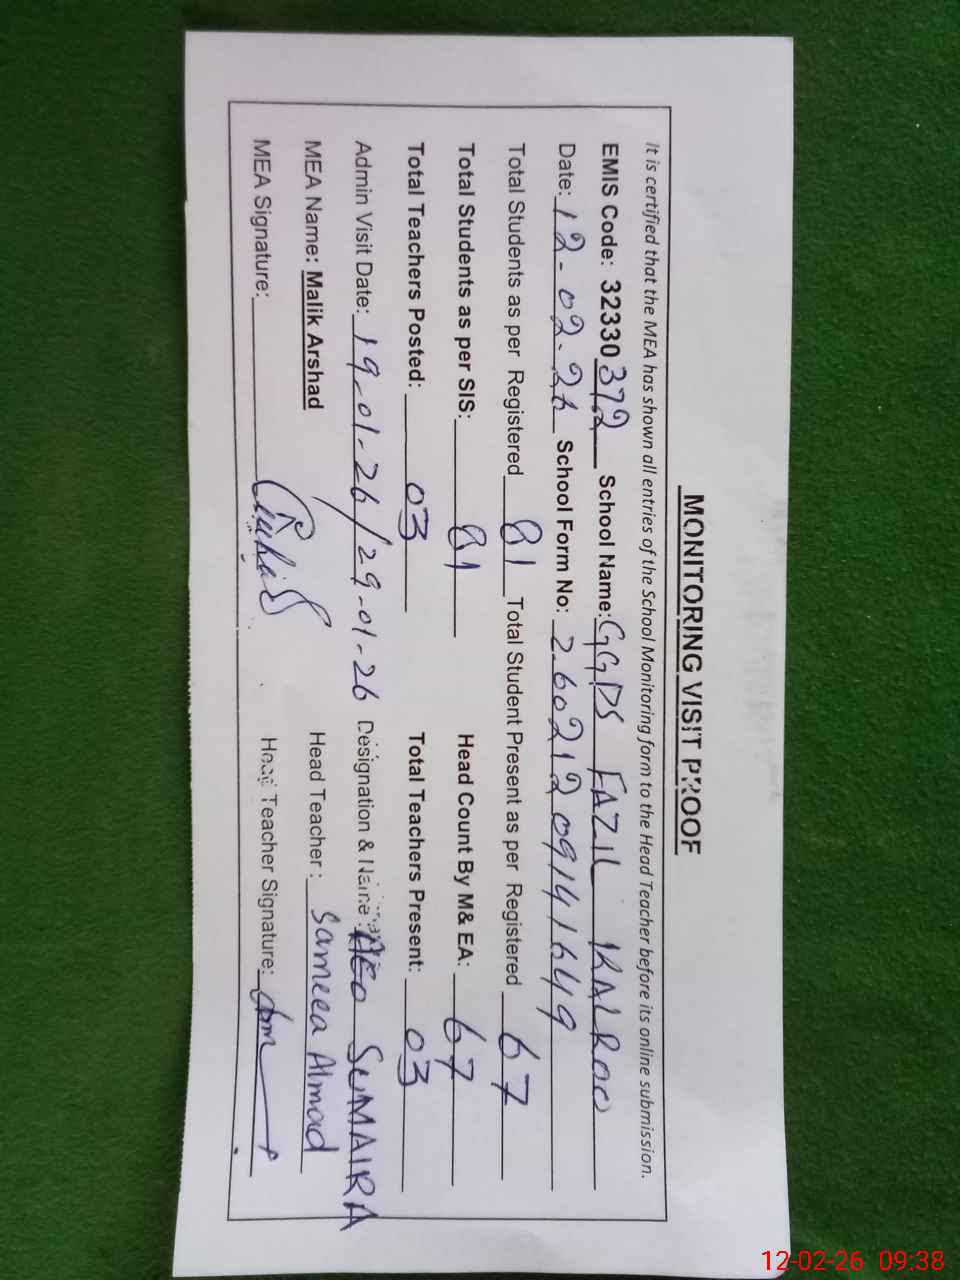 MONITORING VISIT PROOF
It is certified that the MEA has shown all entries of the School Monitoring form to the Head Teacher before its online submission.
EMIS Code: 32330372 School Name: GGPS FAZIL KALROO
Date: 12-02-26 School Form No: 2602120914 1649
Total Students as per Registered 81 Total Student Present as per Registered 67
Total Students as per SIS: 81 Head Count By M& EA: 67
Total Teachers Posted: 03 Total Teachers Present: 03
Admin Visit Date: 19-01-26/29-01-26 Designation & Name: AEO SUMAIRA
MEA Name: Malik Arshad Head Teacher : Sameea Ahmad
MEA Signature: Head Teacher Signature:
12-02-26 09:38